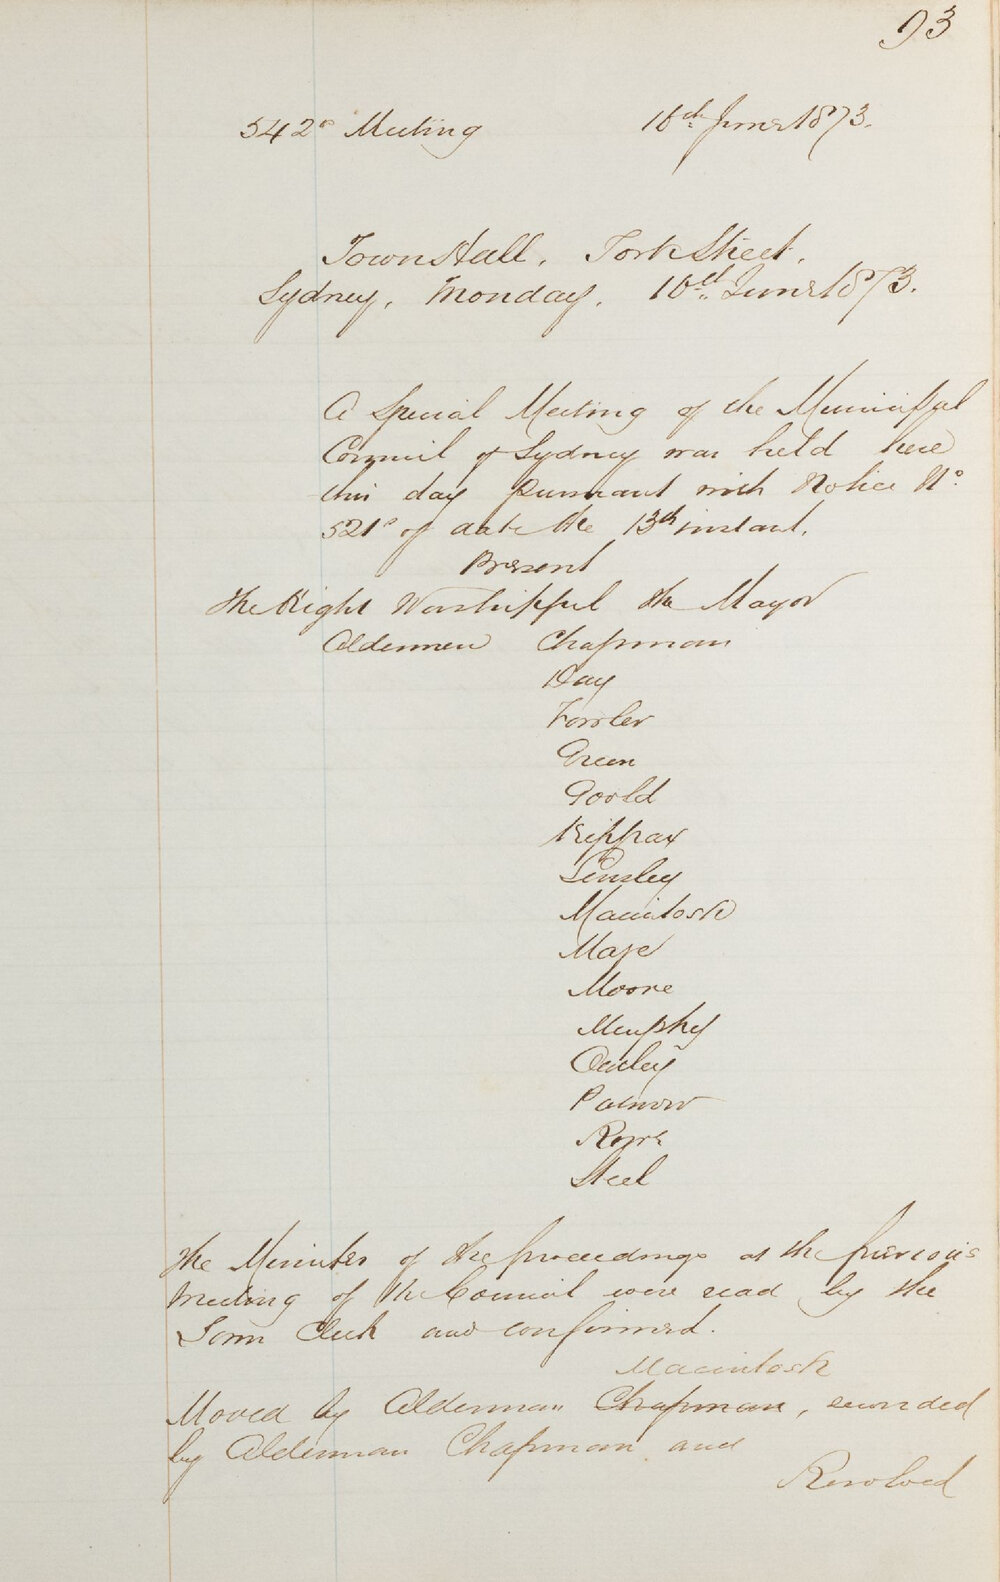 93
542º Meeting 16th June 1873.
Town Hall, York Street,
Sydney, Monday, 16th June 1873.
A Special Meeting of the Municipal
Council of Sydney was held here
this day pursuant with Notice Nº
521º of date the 13th instant.
Present
The Right Worshipful the Mayor
Aldermen Chapman
Day
Fowler
Green
Goold
Kippax
Linsley
Macintosh
Maze
Moore
Murphy
Oatley
Palmer
Rowe
Steel
The Minutes of the proceedings at the previous
Meeting of the Council were read by the
Town Clerk and confirmed.
Macintosh
Moved by Alderman Chapman, seconded
by Alderman Chapman and
Resolved